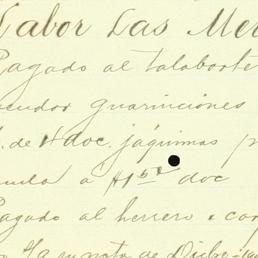 Labor Las Mer
Pagado al talabarte
guarniciones
de 4 doc. jáquimas p
a $1 50 doc
Pagado al herrero
su nota de Dicbre